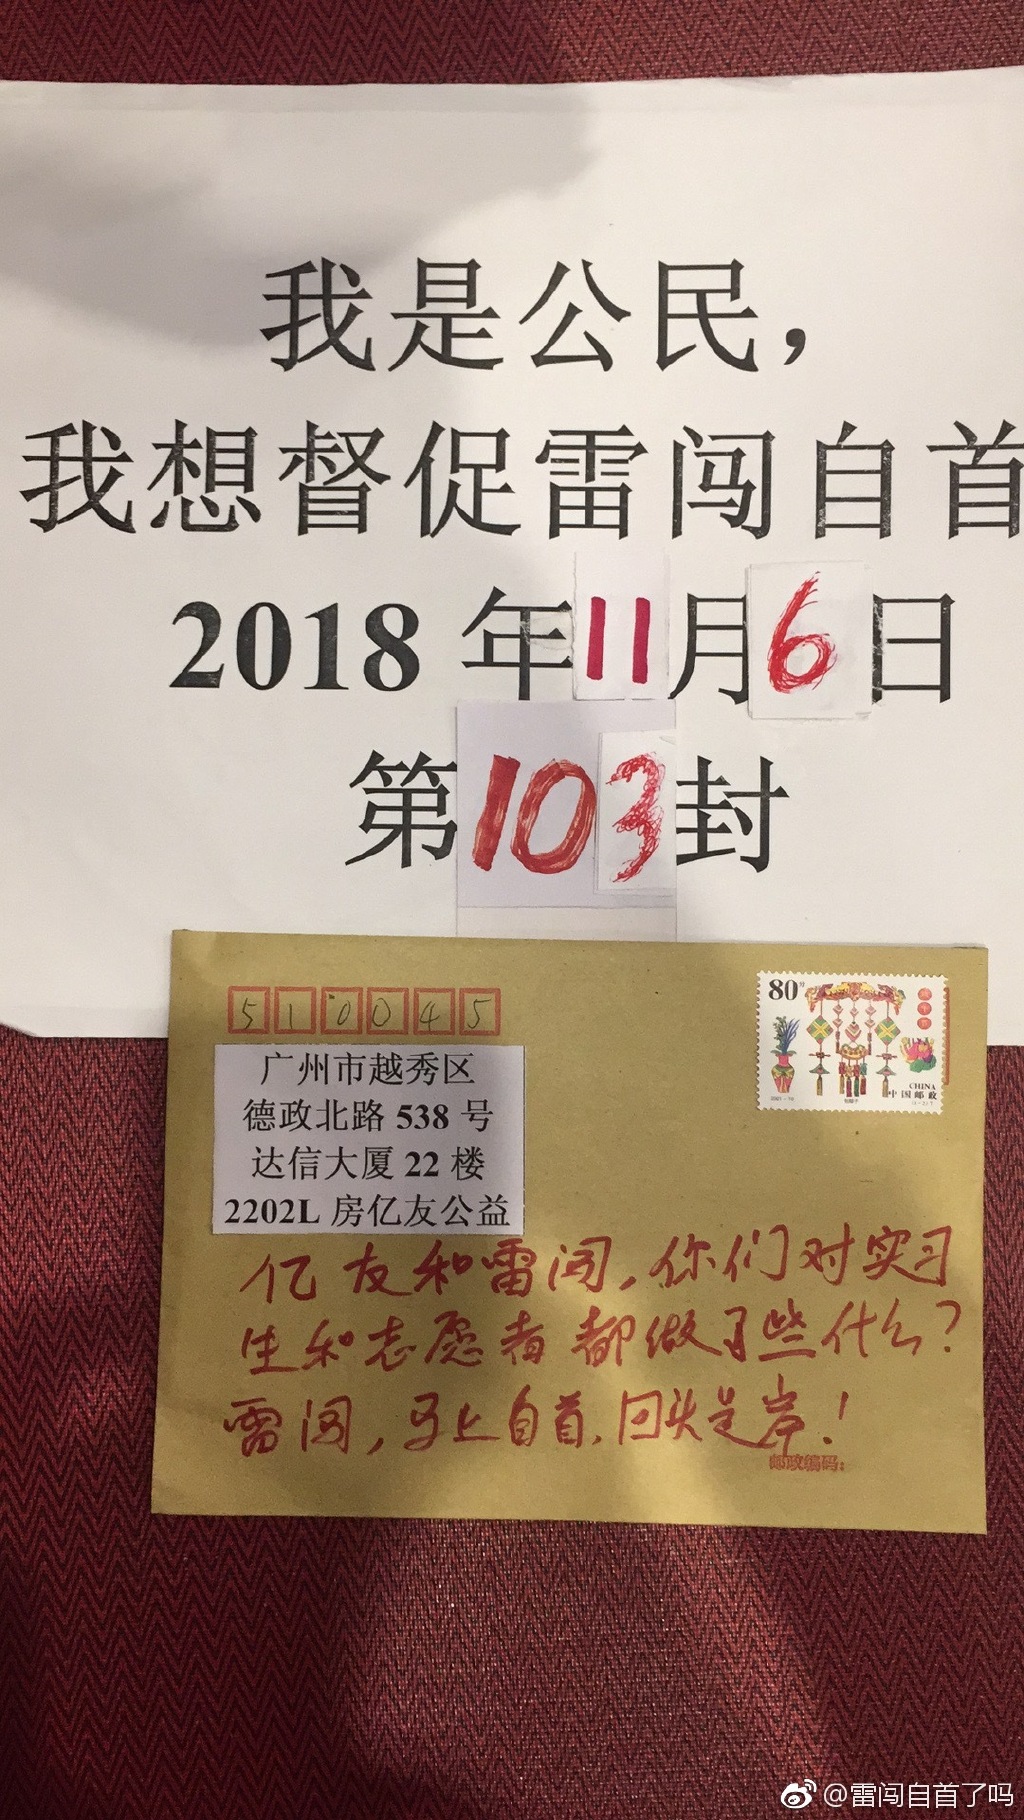 我是公民，
我想督促雷闯自首
2018 年11月6日
第103封
510045
80分
CHINA
中国邮政
广州市越秀区
德政北路 538 号
达信大厦 22 楼
2202L 房亿友公益
亿友和雷闯，你们对实习
生和志愿者都做了些什么？
雷闯，马上自首，回头是岸！
邮政编码：
@雷闯自首了吗